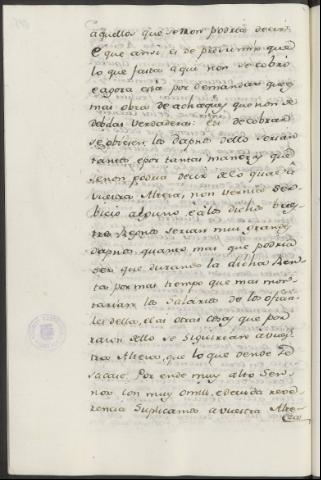 aquellos que se non podria decir.
E que ansi es de presumir que
lo que fasta aqui non se cobró
e agora está por demandar que es
mas obra de achaques que non de
debdas verdaderas. Ca de cobrar
se obiesen, los dapnos dello serian
tantos, e por tantas maneras que
se non podria decir de lo qual á
vuestra Alteza, non vernia ser-
bicio alguno é á los dichos vues-
tros Regnos serian muy grandes
dapnos quanto mas que podria
ser que durando la dicha Ren-
ta por mas tiempo que mas mon-
tarian los salarios de los oficia-
les della, e las otras cosas que por
razon dello se siguirian á vues-
tra Alteza, que lo que dende se
sacase. Por ende muy alto Sen-
nor con muy omill, e debida reve-
rencia suplicamos á vuestra Alte-